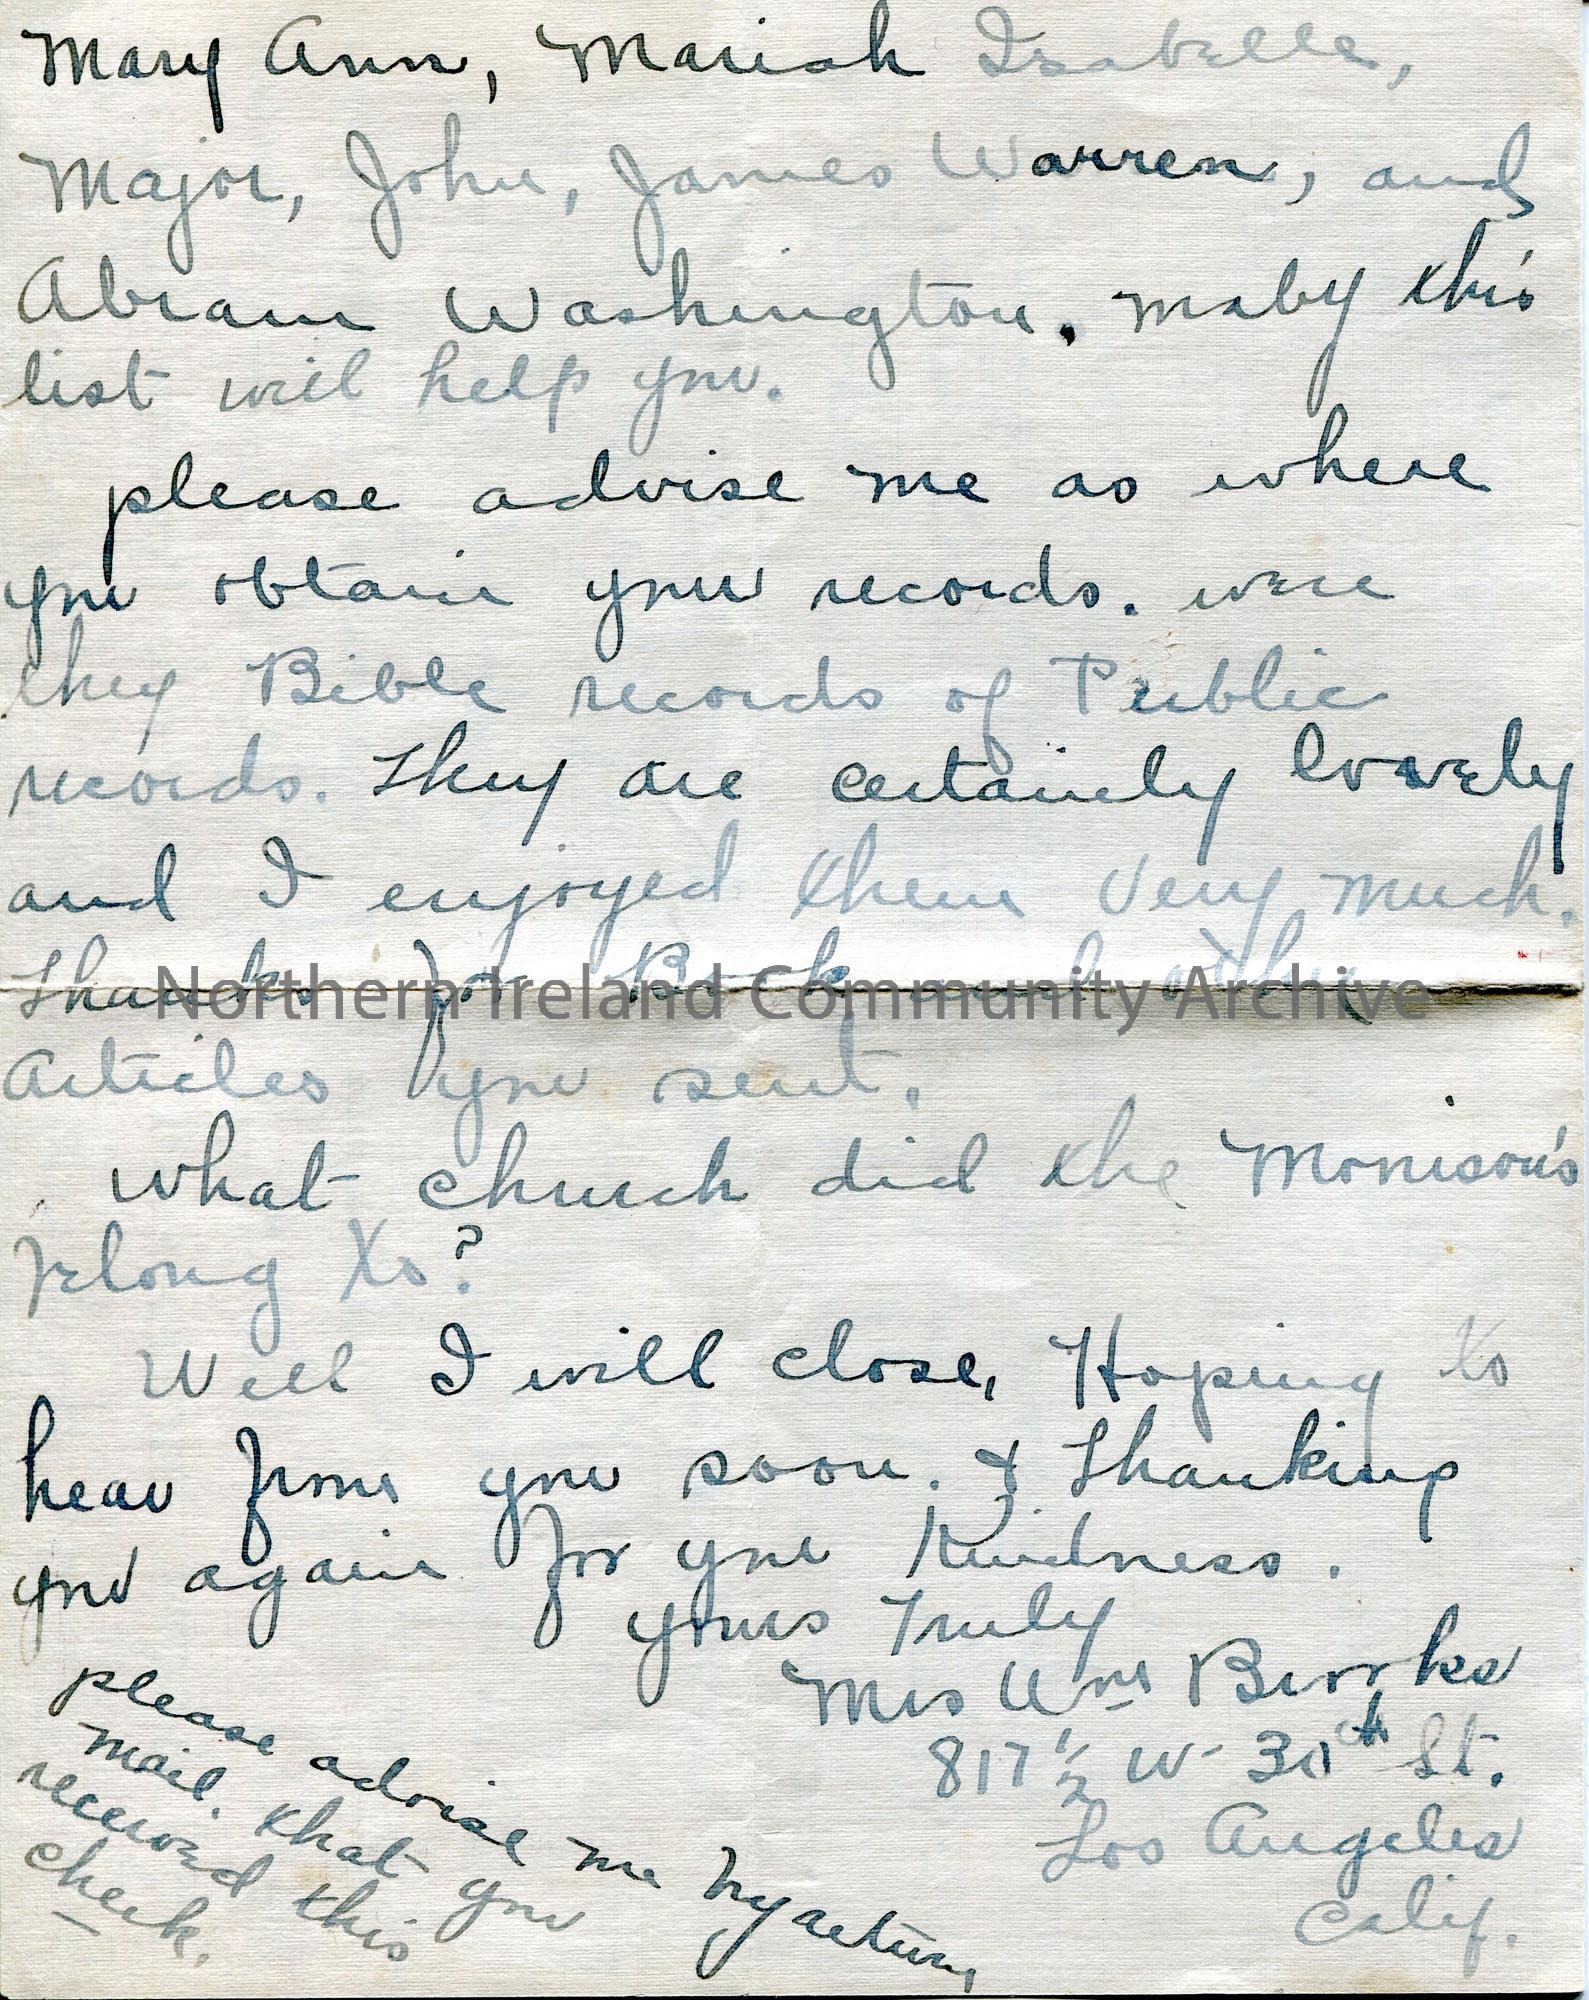 Mary Ann, Mariah Isabelle,
Major, John, James Warren, and
Abram Washington. maby this
list will help you.
please advise me as where
you obtain your records. were
they Bible records of Public
records. They are certainly lovely
and I enjoyed them very much.
Thanks for Book and other
Articles you sent.
What church did the Morrison's
belong to?
Well I will close, Hoping to
hear from you soon. & Thanking
you again for your Kindness.
yours Truly
Mrs Wm Brooks
817 1/2 W- 30th St.
Los Angeles
Calif.
please advise me by return
mail. that you
received this
check.
Northern Ireland Community Archive